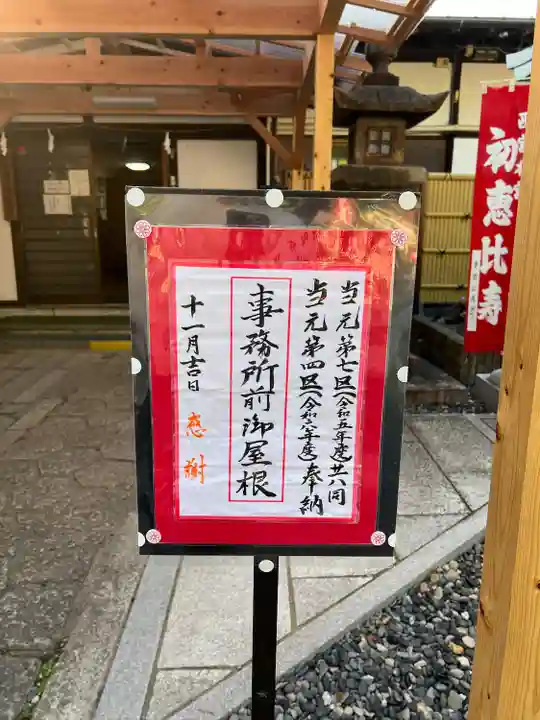 当元第七区(令和五年度)共六同
当元第四区(令和六年度)奉納
事務所前御屋根
十一月吉日
感謝
初恵比寿